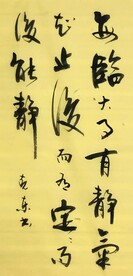 每臨大事有靜氣
知止後而有定〻而
後能靜